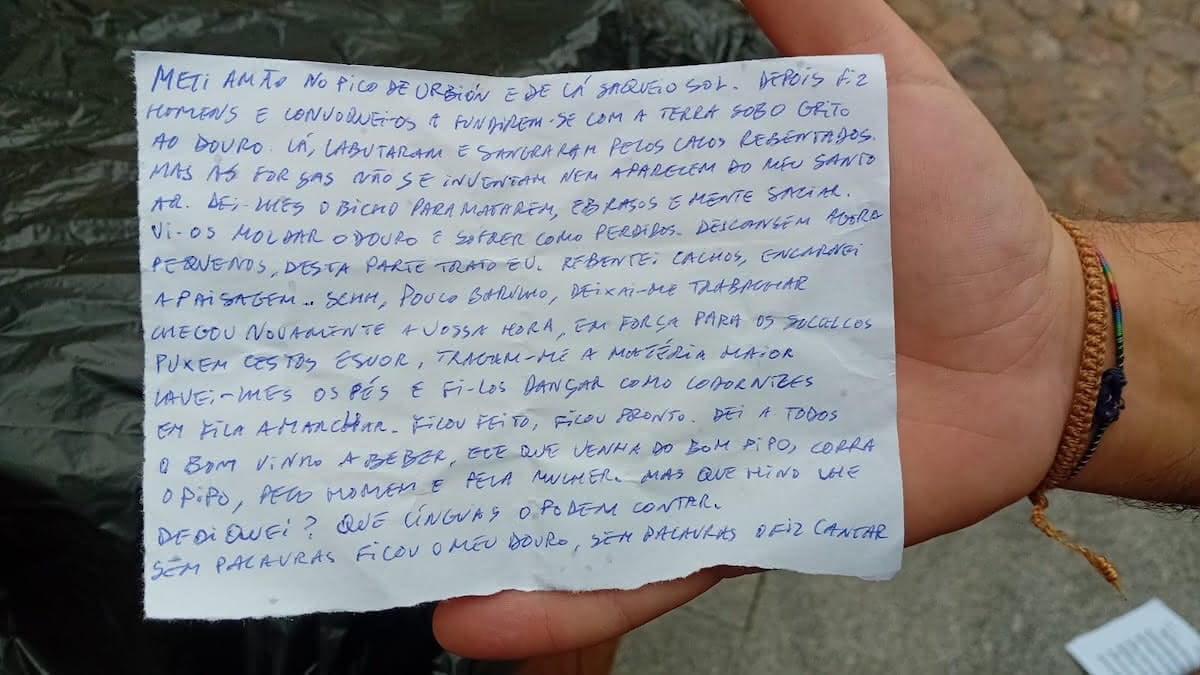 METI A MÃO NO PICO DE URBIÓN E DE LÁ SAQUEI O SOL. DEPOIS FIZ
HOMENS E CONVOQUEI-OS A FUNDIREM-SE COM A TERRA SOB O GRITO
AO DOURO. LÁ, LABUTARAM E SANGRARAM PELOS CALOS REBENTADOS.
MAS AS FORÇAS NÃO SE INVENTAM NEM APARECEM DO MEU SANTO
AR. DEI-LHES O BICHO PARA MATAREM, E BRAÇOS E MENTE SACIAR.
VI-OS MOLDAR O DOURO E SOFRER COMO PERDIDOS. DESCANSEM AGORA
PEQUENOS, DESTA PARTE TRATO EU. REBENTEI CACHOS, ENCARNEI
A PAISAGEM.. SCHH, POUCO BARULHO, DEIXAI-ME TRABALHAR
CHEGOU NOVAMENTE A VOSSA HORA, EM FORÇA PARA OS SOCALCOS
PUXEM CESTOS E SUOR, TRAGAM-ME A MATÉRIA MAIOR
LAVEI-LHES OS PÉS E FI-LOS DANÇAR COMO CODORNIZES
EM FILA A MARCHAR. FICOU FEITO, FICOU PRONTO. DEI A TODOS
O BOM VINHO A BEBER, ELE QUE VENHA DO BOM PIPO, CORRA
O PIPO, PELO HOMEM E PELA MULHER. MAS QUE HINO LHE
DEDIQUEI? QUE LÍNGUAS O PODEM CONTAR.
SEM PALAVRAS FICOU O MEU DOURO, SEM PALAVRAS O FIZ CANTAR